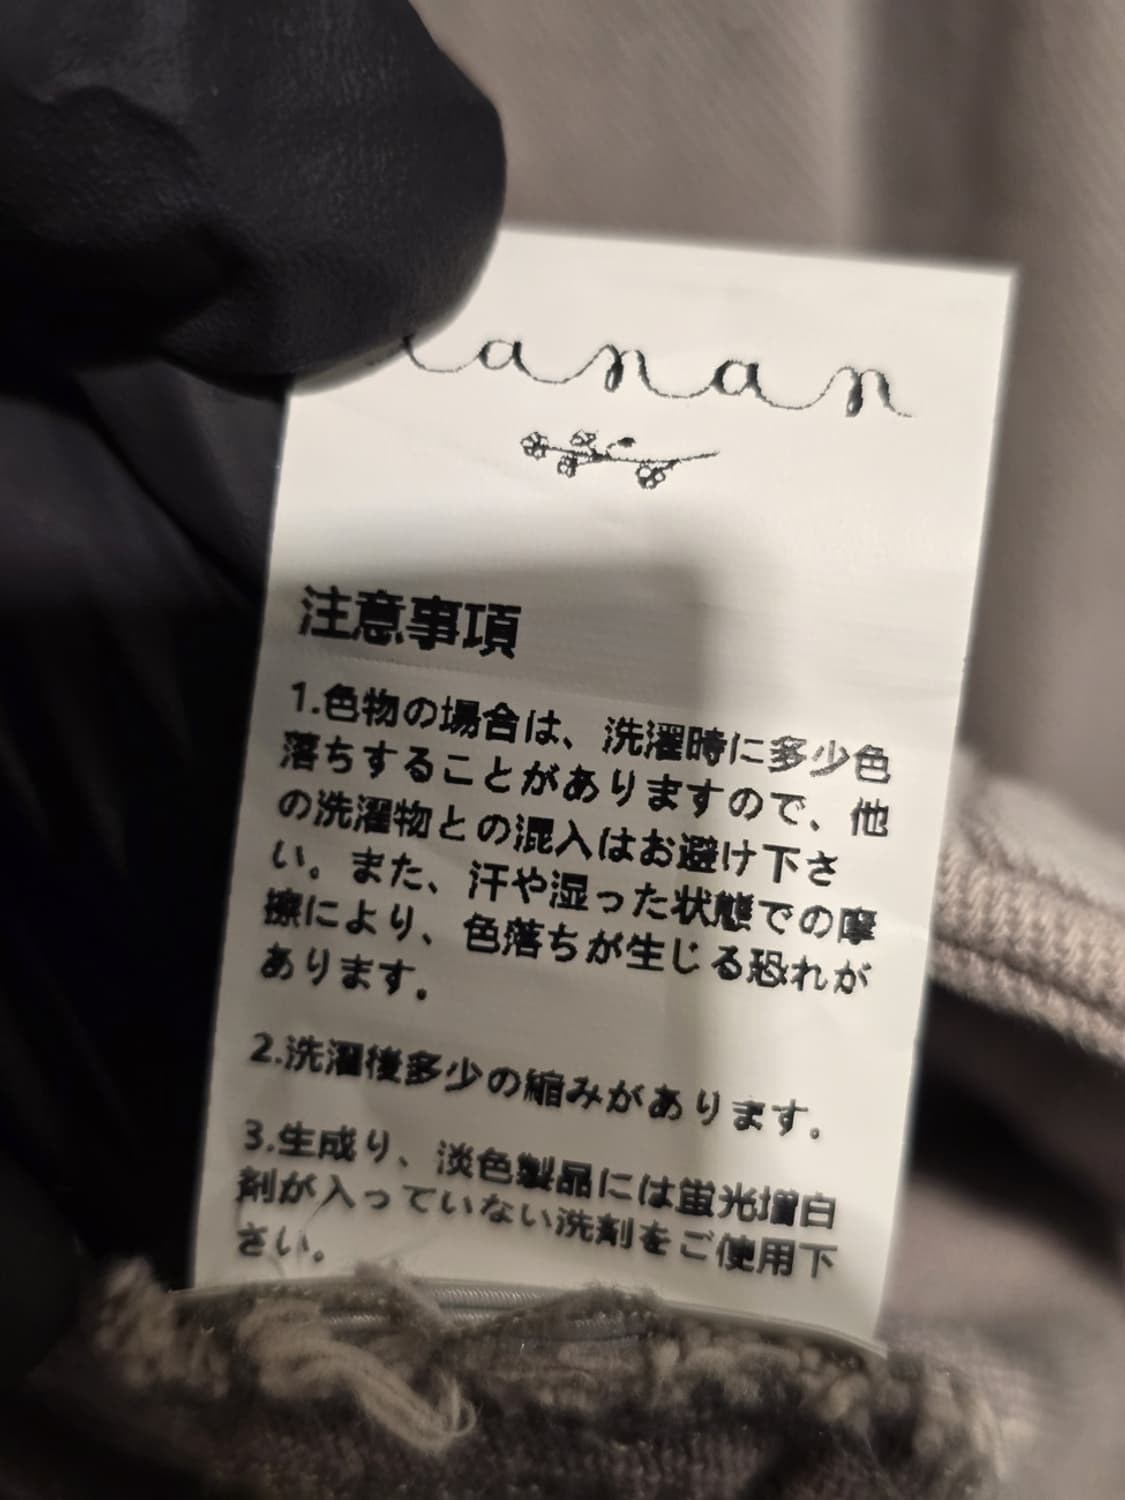 lanan
注意事項
1.色物の場合は、洗濯時に多少色
落ちすることがありますので、他
の洗濯物との混入はお避け下さ
い。また、汗や湿った状態での摩
擦により、色落ちが生じる恐れが
あります。
2.洗濯後多少の縮みがあります。
3.生成り、淡色製品には蛍光増白
剤が入っていない洗剤をご使用下
さい。